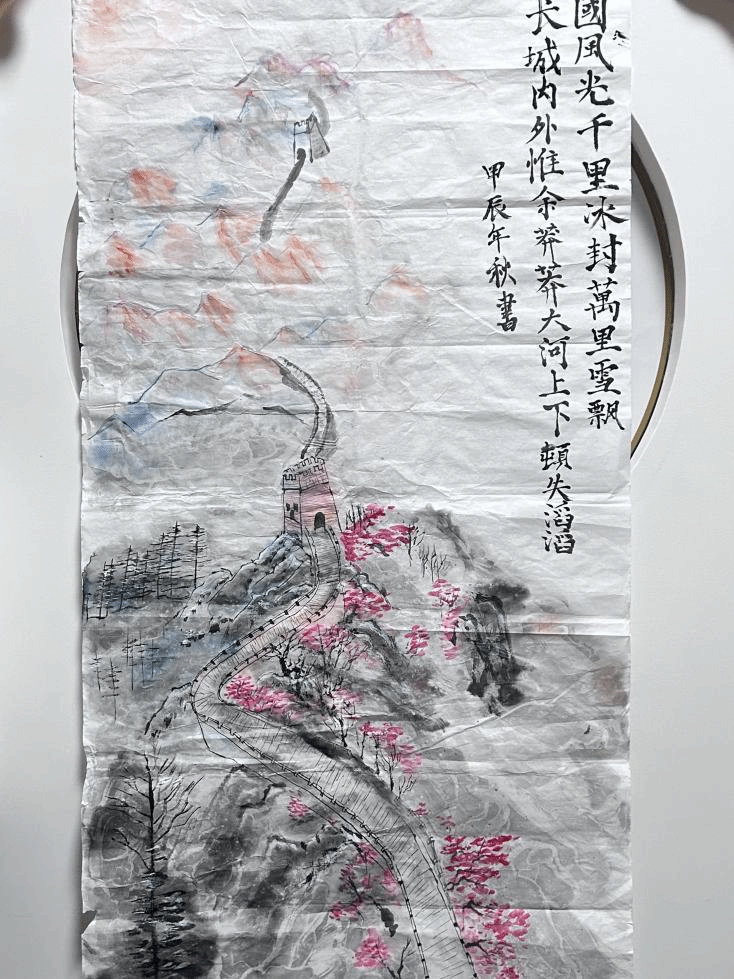 國風光千里冰封萬里雪飄
長城内外惟余莽莽大河上下頓失滔滔
甲辰年秋書